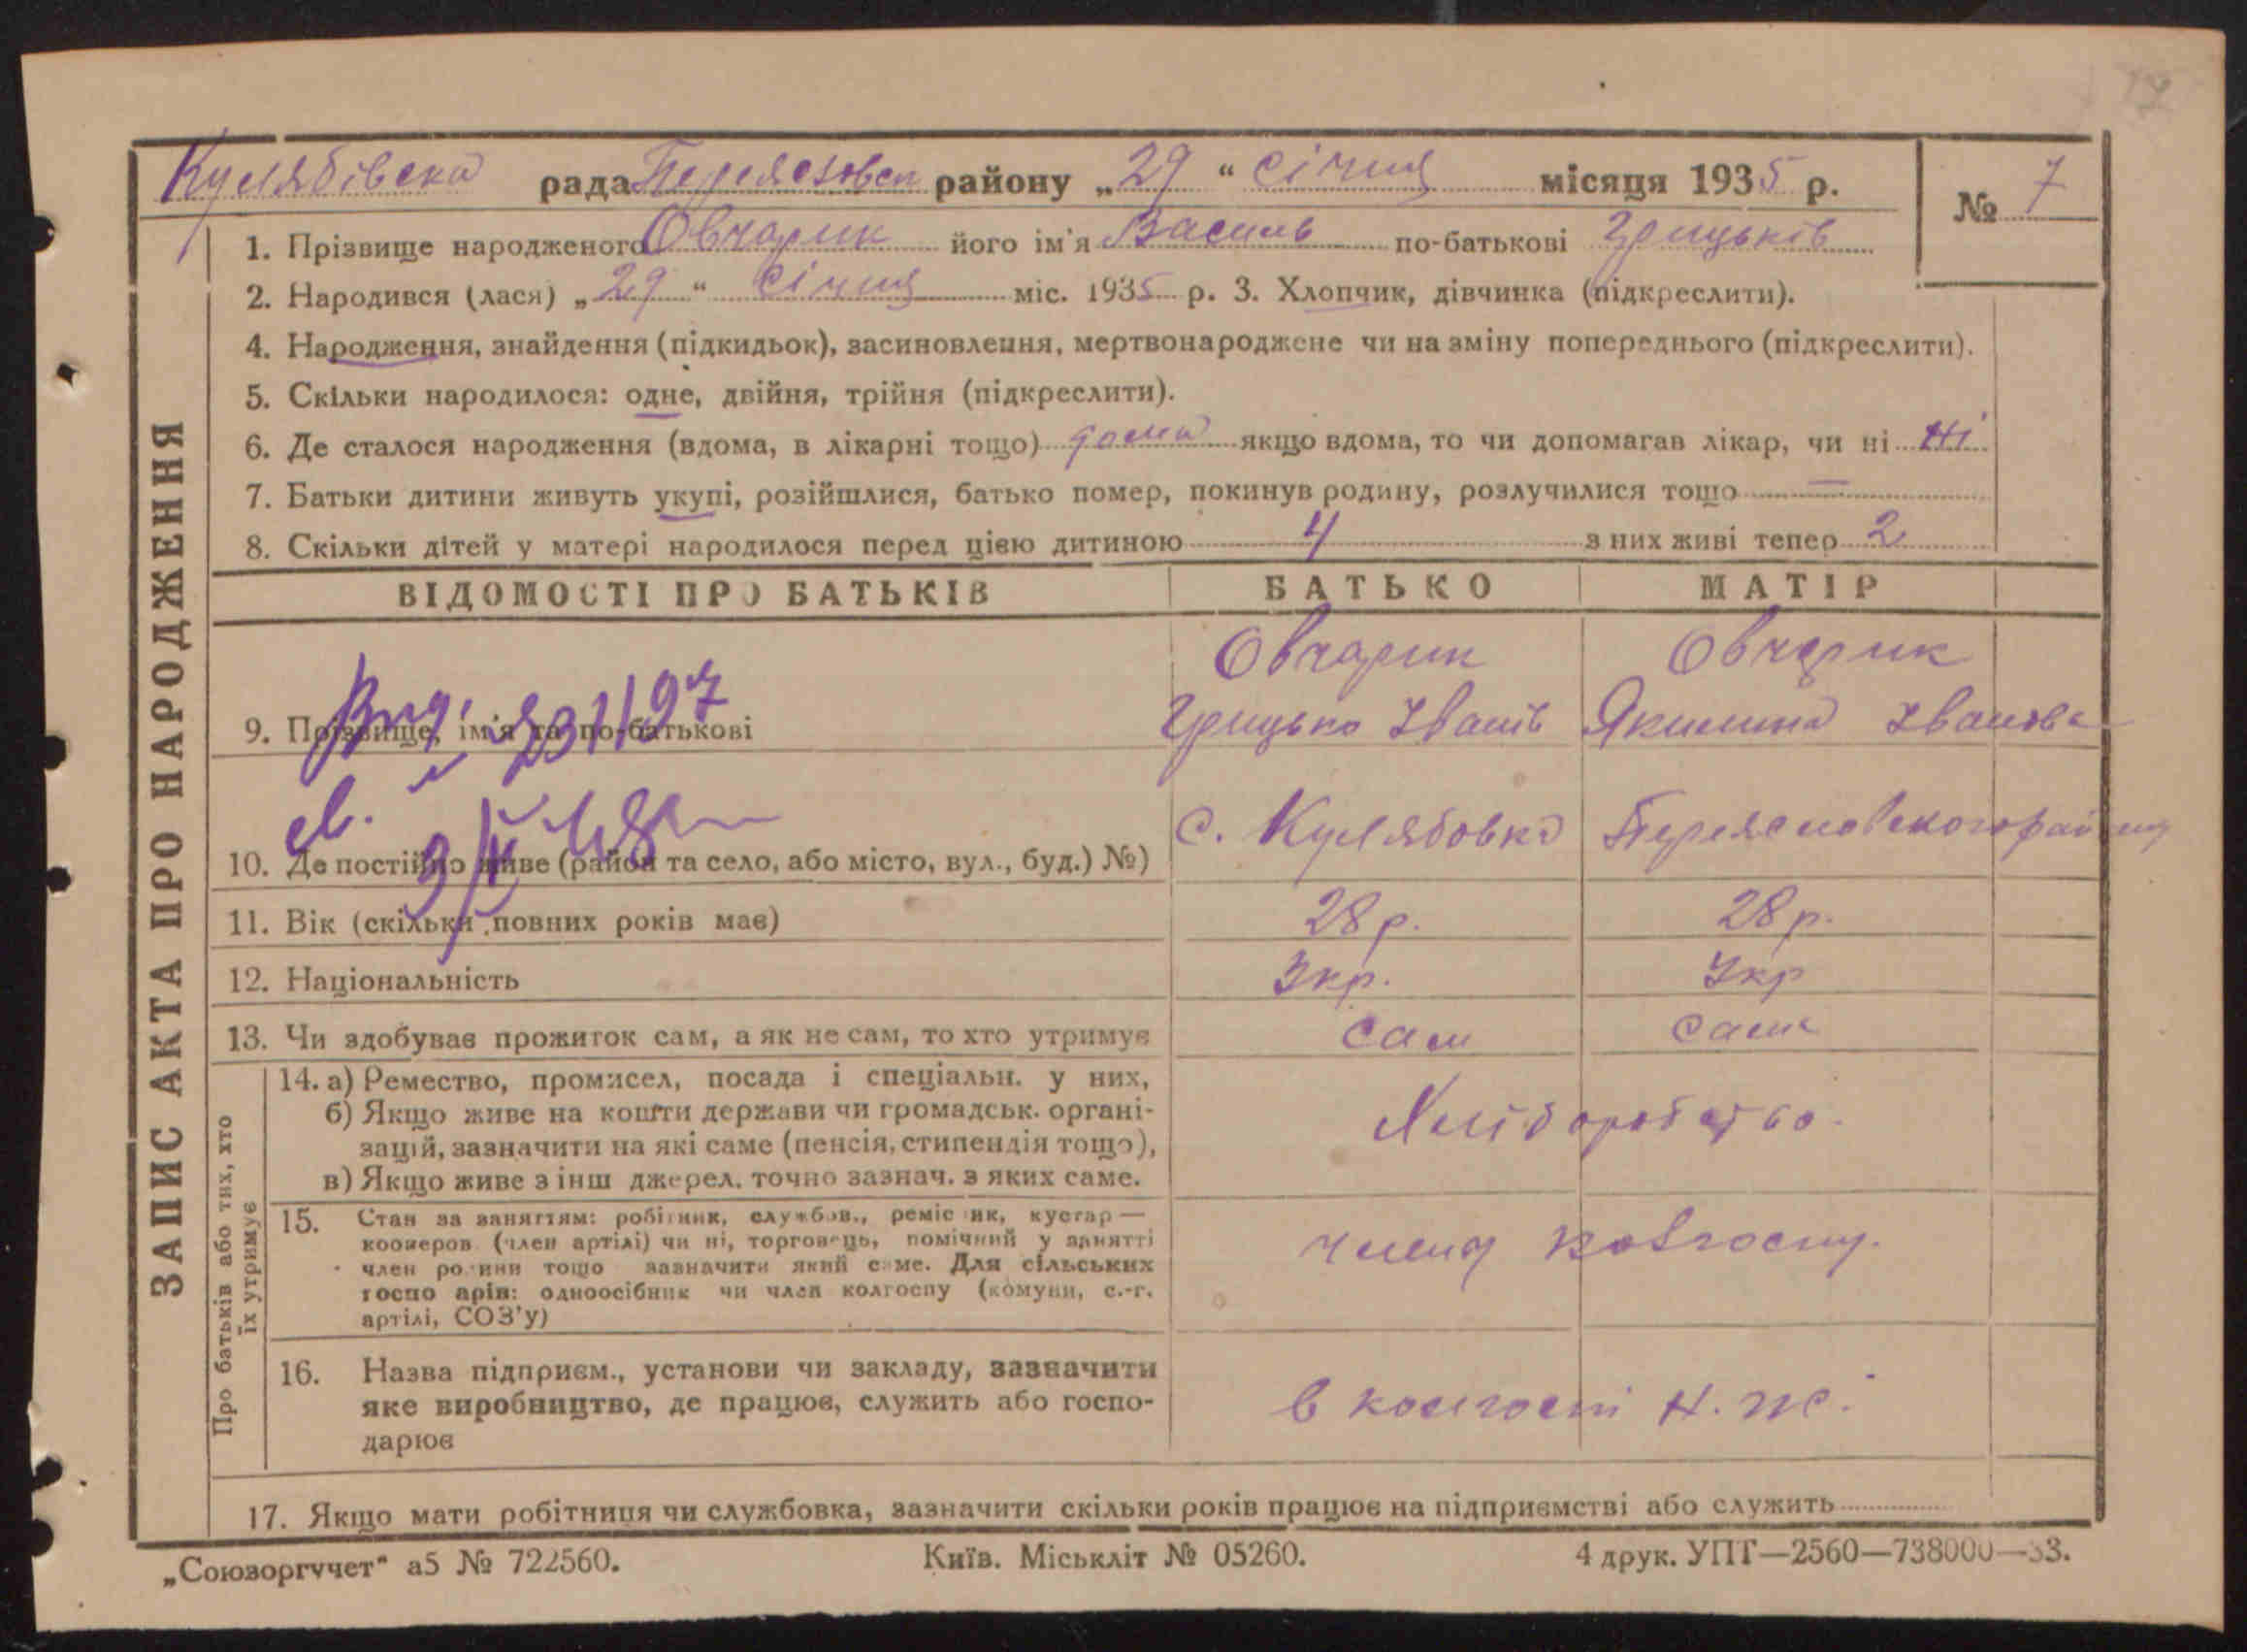 17
Кулябівська рада Переяславськ району „29“ січня місяця 1935 р. № 7
1. Прізвище народженого Овчарик його ім'я Василь по-батькові Грицьків
2. Народився (лася) „29“ січня міс. 1935 р. 3. Хлопчик, дівчинка (підкреслити).
4. Народження, знайдення (підкидьок), засиновлення, мертвонароджене чи на зміну попереднього (підкреслити).
5. Скільки народилося: одне, двійня, трійня (підкреслити).
6. Де сталося народження (вдома, в лікарні тощо) дома якщо вдома, то чи допомагав лікар, чи ні Ні
7. Батьки дитини живуть укупі, розійшлися, батько помер, покинув родину, розлучилися тощо —
8. Скільки дітей у матері народилося перед цією дитиною 4 з них живі тепер 2
ЗАПИС АКТА ПРО НАРОДЖЕННЯ
ВІДОМОСТІ ПРО БАТЬКІВ БАТЬКО МАТІР
Овчарик Овчарик
9. Прізвище, ім'я та по-батькові Грицько Іванів Якилина Іванова
10. Де постійно живе (район та село, або місто, вул., буд.) №) с. Кулябовка Переяславського району
11. Вік (скільки повних років має) 28 р. 28 р.
12. Національність Укр. Укр
13. Чи здобуває прожиток сам, а як не сам, то хто утримує сам сама
Про батьків або тих, хто
їх утримує
14. а) Ремество, промисел, посада і спеціальн. у них,
б) Якщо живе на кошти держави чи громадськ. органі-
зацій, зазначити на які саме (пенсія, стипендія тощо),
в) Якщо живе з інш джерел, точно зазнач. з яких саме.
Хліборобство.
15. Стан за заняттям: робітник, службов., реміс ик, кустар —
кооперов. (член артілі) чи ні, торговець, помічний у занятті
член родини тощо зазначити який саме. Для сільських
госпо арів: одноосібник чи член колгоспу (комуни, с.-г.
артілі, СОЗ'у)
члени колгоспу.
16. Назва підприєм., установи чи закладу, зазначити
яке виробництво, де працює, служить або госпо-
дарює
в колгоспі Н. ж.
17. Якщо мати робітниця чи службовка, зазначити скільки років працює на підприємстві або служить
„Союзоргучет“ а5 № 722560. Київ. Міськліт № 05260. 4 друк. УПТ—2560—738000—33.